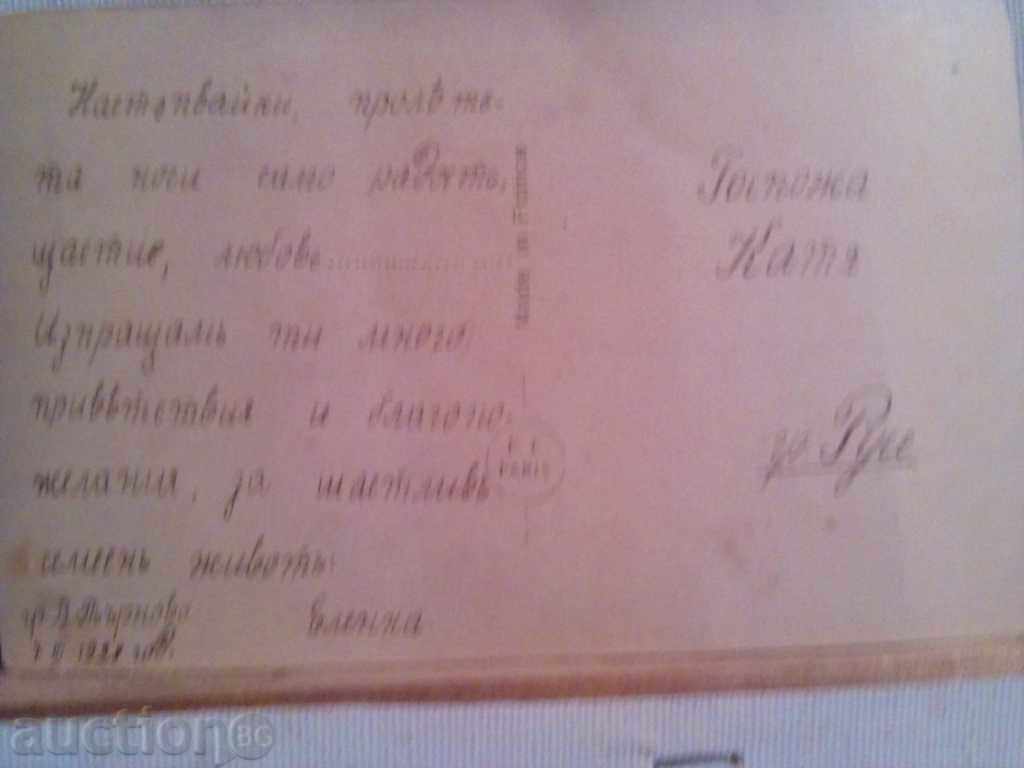 Настѫпвайки, пролѣть-
та носи само радость,
щастие, любовь..............
Изпращамъ ти много
приветствия и благопо-
желания, за щастливъ
имень животъ:
гр. В. Търново Еленка
год.
Made in France
PARIS
Госпожа
Катя
до Русе
auctionBG